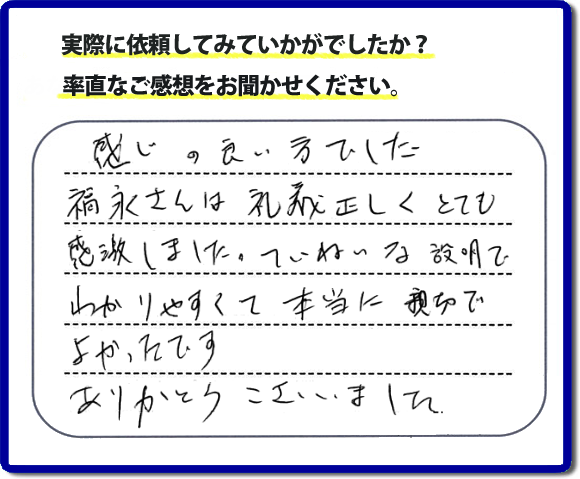 実際に依頼してみていかがでしたか？
率直なご感想をお聞かせください。
感じの良い方でした
福永さんは礼儀正しくとても
感激しました。ていねいな説明で
わかりやすくて本当に親切で
よかったです
ありがとうございました